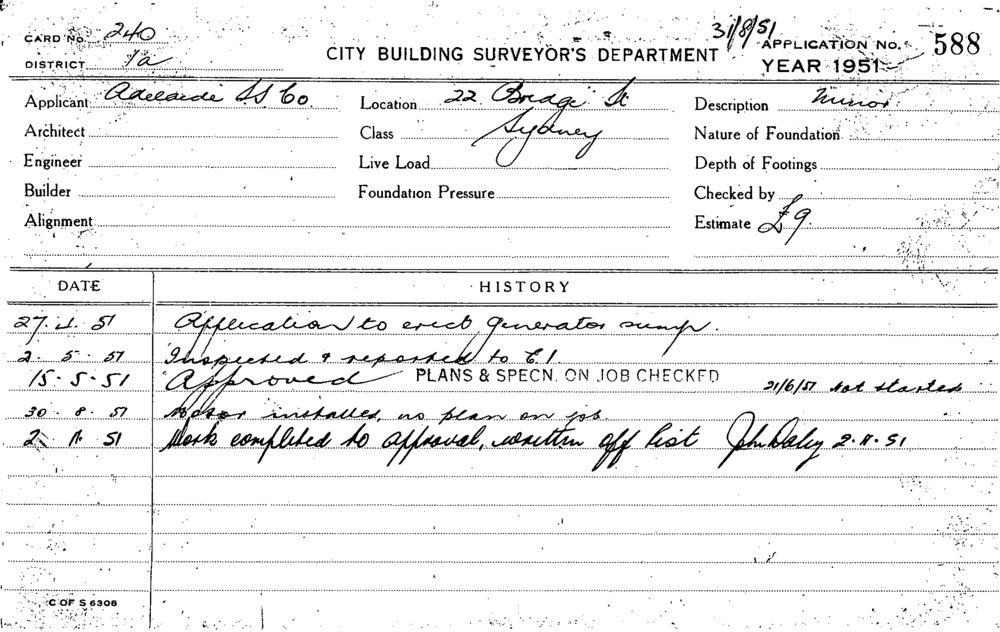 CARD NO. 240
DISTRICT 1a
CITY BUILDING SURVEYOR'S DEPARTMENT
31/8/51
APPLICATION No. 588
YEAR 1951
Applicant Adelaide SS Co. Location 22 Bridge St Description Minor
Architect Class Sydney Nature of Foundation
Engineer Live Load Depth of Footings
Builder Foundation Pressure Checked by
Alignment Estimate £9
DATE HISTORY
27. 4. 51 Application to erect generator sump.
2. 5. 51 Inspected & reported to C.I.
15. 5. 51 Approved PLANS & SPECN. ON JOB CHECKED 21/6/51 Not started
30. 8. 51 installed, no plan on job.
2. 11. 51 Work completed to approval, written off list John Daley 2.11.51
C OF S 6308